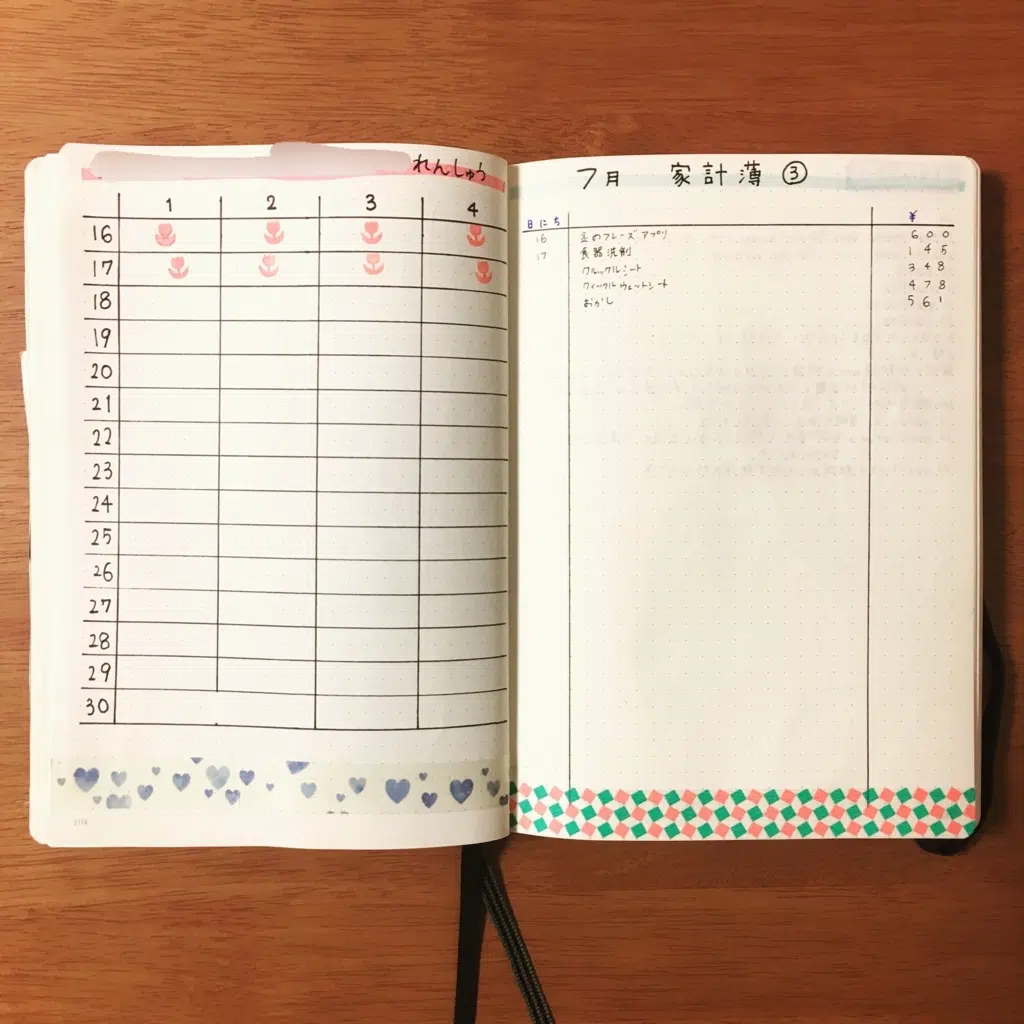 れんしゅう
1 2 3 4
16
17
18
19
20
21
22
23
24
25
26
27
28
29
30
7月 家計薄 ③
日にち ¥
16 金のフレーズアプリ 600
17 食器洗剤 145
クイックルシート 348
クイックルウェットシート 478
おかし 561